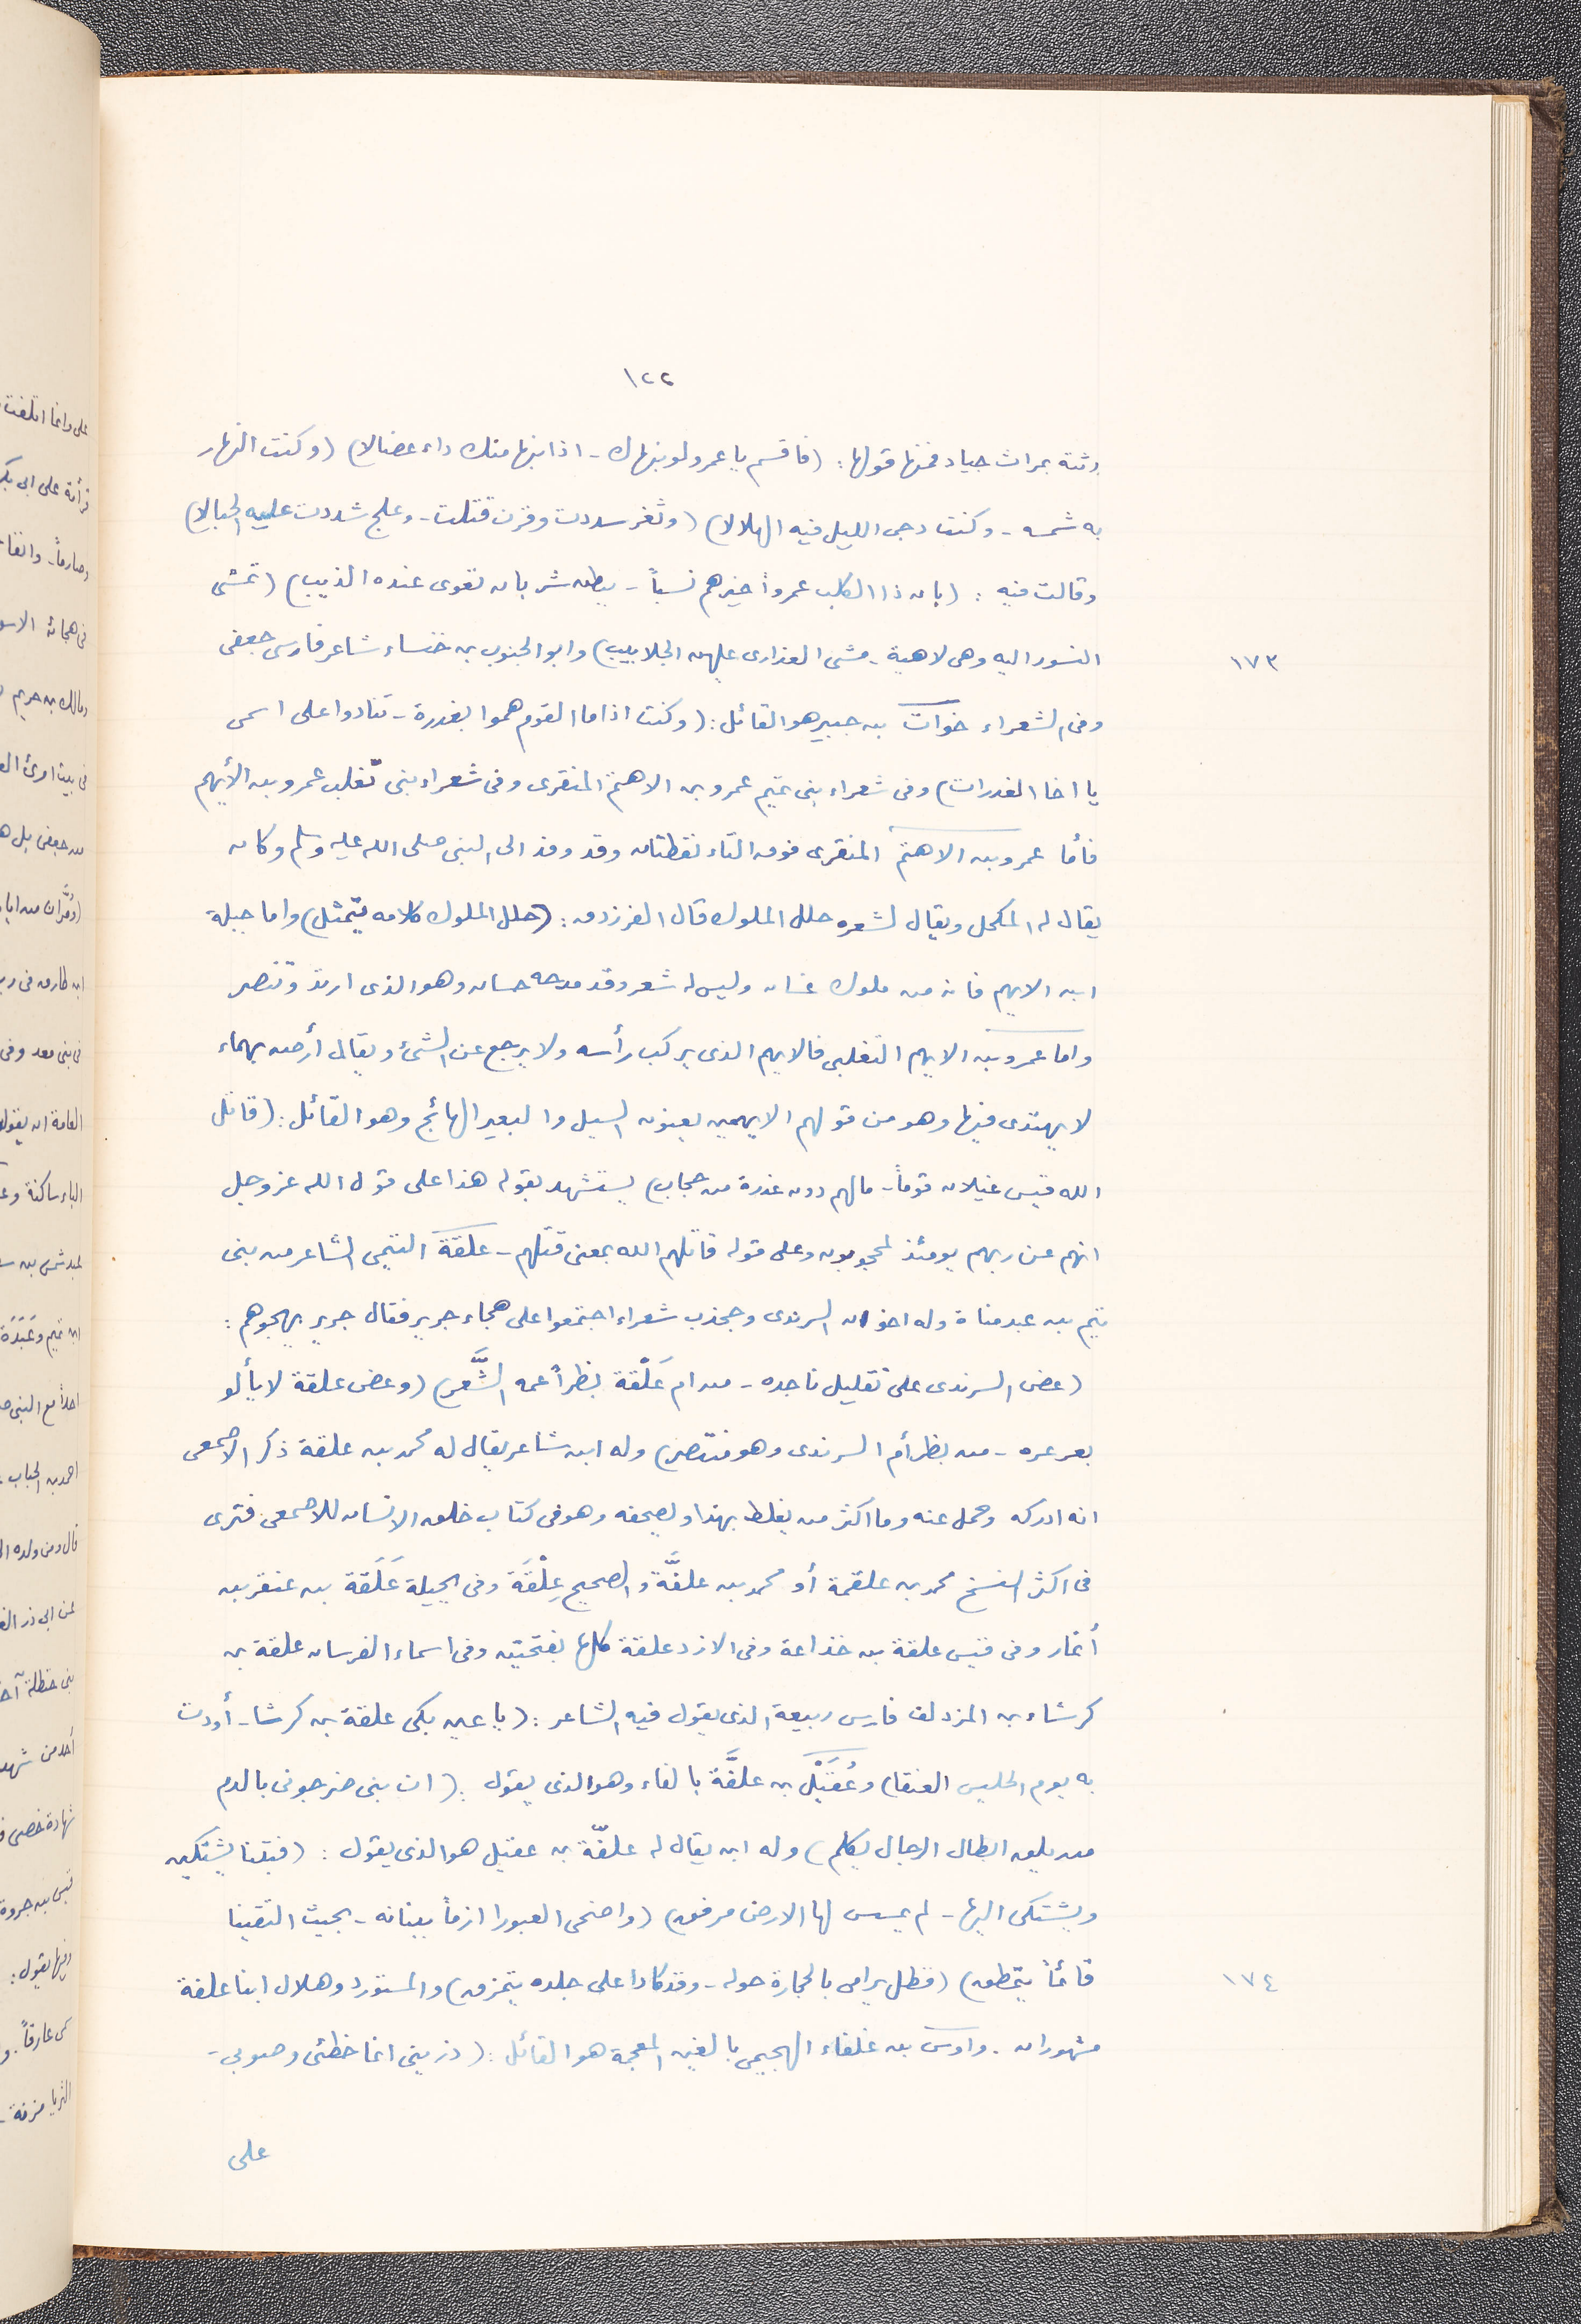 ١٢٢
رثته بمراث جياد فمنها قولها : (فاقسم يا عمرو لو نبهاك - اذا نبها منك داء عضالا) (وكنت النهار
به شمسه - وكنت دجى الليل فيه الهلالا) (وثغر سددت وقرن قتلت - وعلج شددت عليه الحبالا)
وقالت فيه : (بان ذا الكلب عمرواً خيرهم نسباً - ببطن شريان تعوى عنده الذيب) (تمشى
النسور اليه وهى لاهية - مشى العذارى عليهن الجلابيب) وابو الجنوب بن خنساء شاعر فارسى جعفى
١٧٣
وفى الشعراء خوات بن جبير هو القائل : (وكنت اذا ما القوم هموا بغدرة - تنادوا على اسمى
يا اخا الغدرات) وفى شعراء بنى تميم عمرو بن الاهتم المنقرى وفى شعراء بنى تغلب عمرو بن الأيهم
فأما عمرو بن الاهتم المنقرى فوق التاء نقطتان وقد وفد الى النبى صلى الله عليه وسلم وكان
يقال له المكحل ويقال لشعره حلل الملوك قال الفرزدق : (حلل الملوك كلامه يتمثل) واما جبلة
ابن الايهم فانه من ملوك غسان وليس له شعر وقد مدحه حسان وهو الذى ارتد وتنصر
واما عمرو بن الايهم التغلبى فالايهم الذى يركب رأسه ولا يرجع عن الشئ ويقال أرض يهماء
لا يهتدى فيها وهو من قولهم الايهمين يعنون السيل والبعير الهائج وهو القائل : (قاتل
الله قيس عيلان قوماً - مالهم دون غدرة من حجاب) يستشهد بقوله هذا على قول الله عز وجل
انهم عن ربهم يومئذ لمحجوبون وعلى قوله قاتلهم الله بمعنى قتلهم - علقة التيمى الشاعر من بنى
تيم بن عبد مناة وله اخوان السرندى وجخدب شعراء اجتمعوا على هجاء جرير فقال جرير يهجوهم :
(عض السرندى على تقليل ناجده - من ام عَلْقة بظراً عمه الشَّعر) (وعض علقة لا يألو
بعرعره - من بظر أم السرندى وهو منتصر) وله ابن شاعر يقال له محمد بن علقة ذكر الاصمعى
انه ادركه وحمل عنه وما اكثر من يغلط بهذا ويصحفه وهو فى كتاب خلق الانسان للاصمعى فترى
فى اكثر النسخ محمد بن علقمة أو محمد بن علفَّة والصحيح عِلْقَة وفى بجيلة عَلَقة بن عبقر بن
أنمار وفى قيس علقة بن خذاعة وفى الازد علقة كلها بفتحتين وفى اسماء الفرسان علقة بن
كرشاء بن المزدلف فارس ربيعة الذى يقول فيه الشاعر : (يا عين بكى علقة بن كرشا - أودت
به يوم الحليس العنقا) وعُقَيْل بن علفَّة بالفاء وهو الذى يقول : (ان بنى ضرجونى بالدم
من يلق ابطال الرجال يكلم) وله ابن يقال له علفّة بن عقيل هو الذى يقول : (فبتنا يشتكين
ويشتكى اليها - لم يمسس لها الارض مرفق) (واضحى العبورا ازماً ببنانه - بحيث التقينا
قائماً يتمطق) (فظل يرامى بالحجارة حوله - وقد كادا على جلده يتمزق) والمستورد وهلال ابنا علفة
١٧٤
مشهوران . واوس بن غلفاء الهجيمى بالغين المعجمة هو القائل : (ذرينى انما خطئى وصوبى -
على